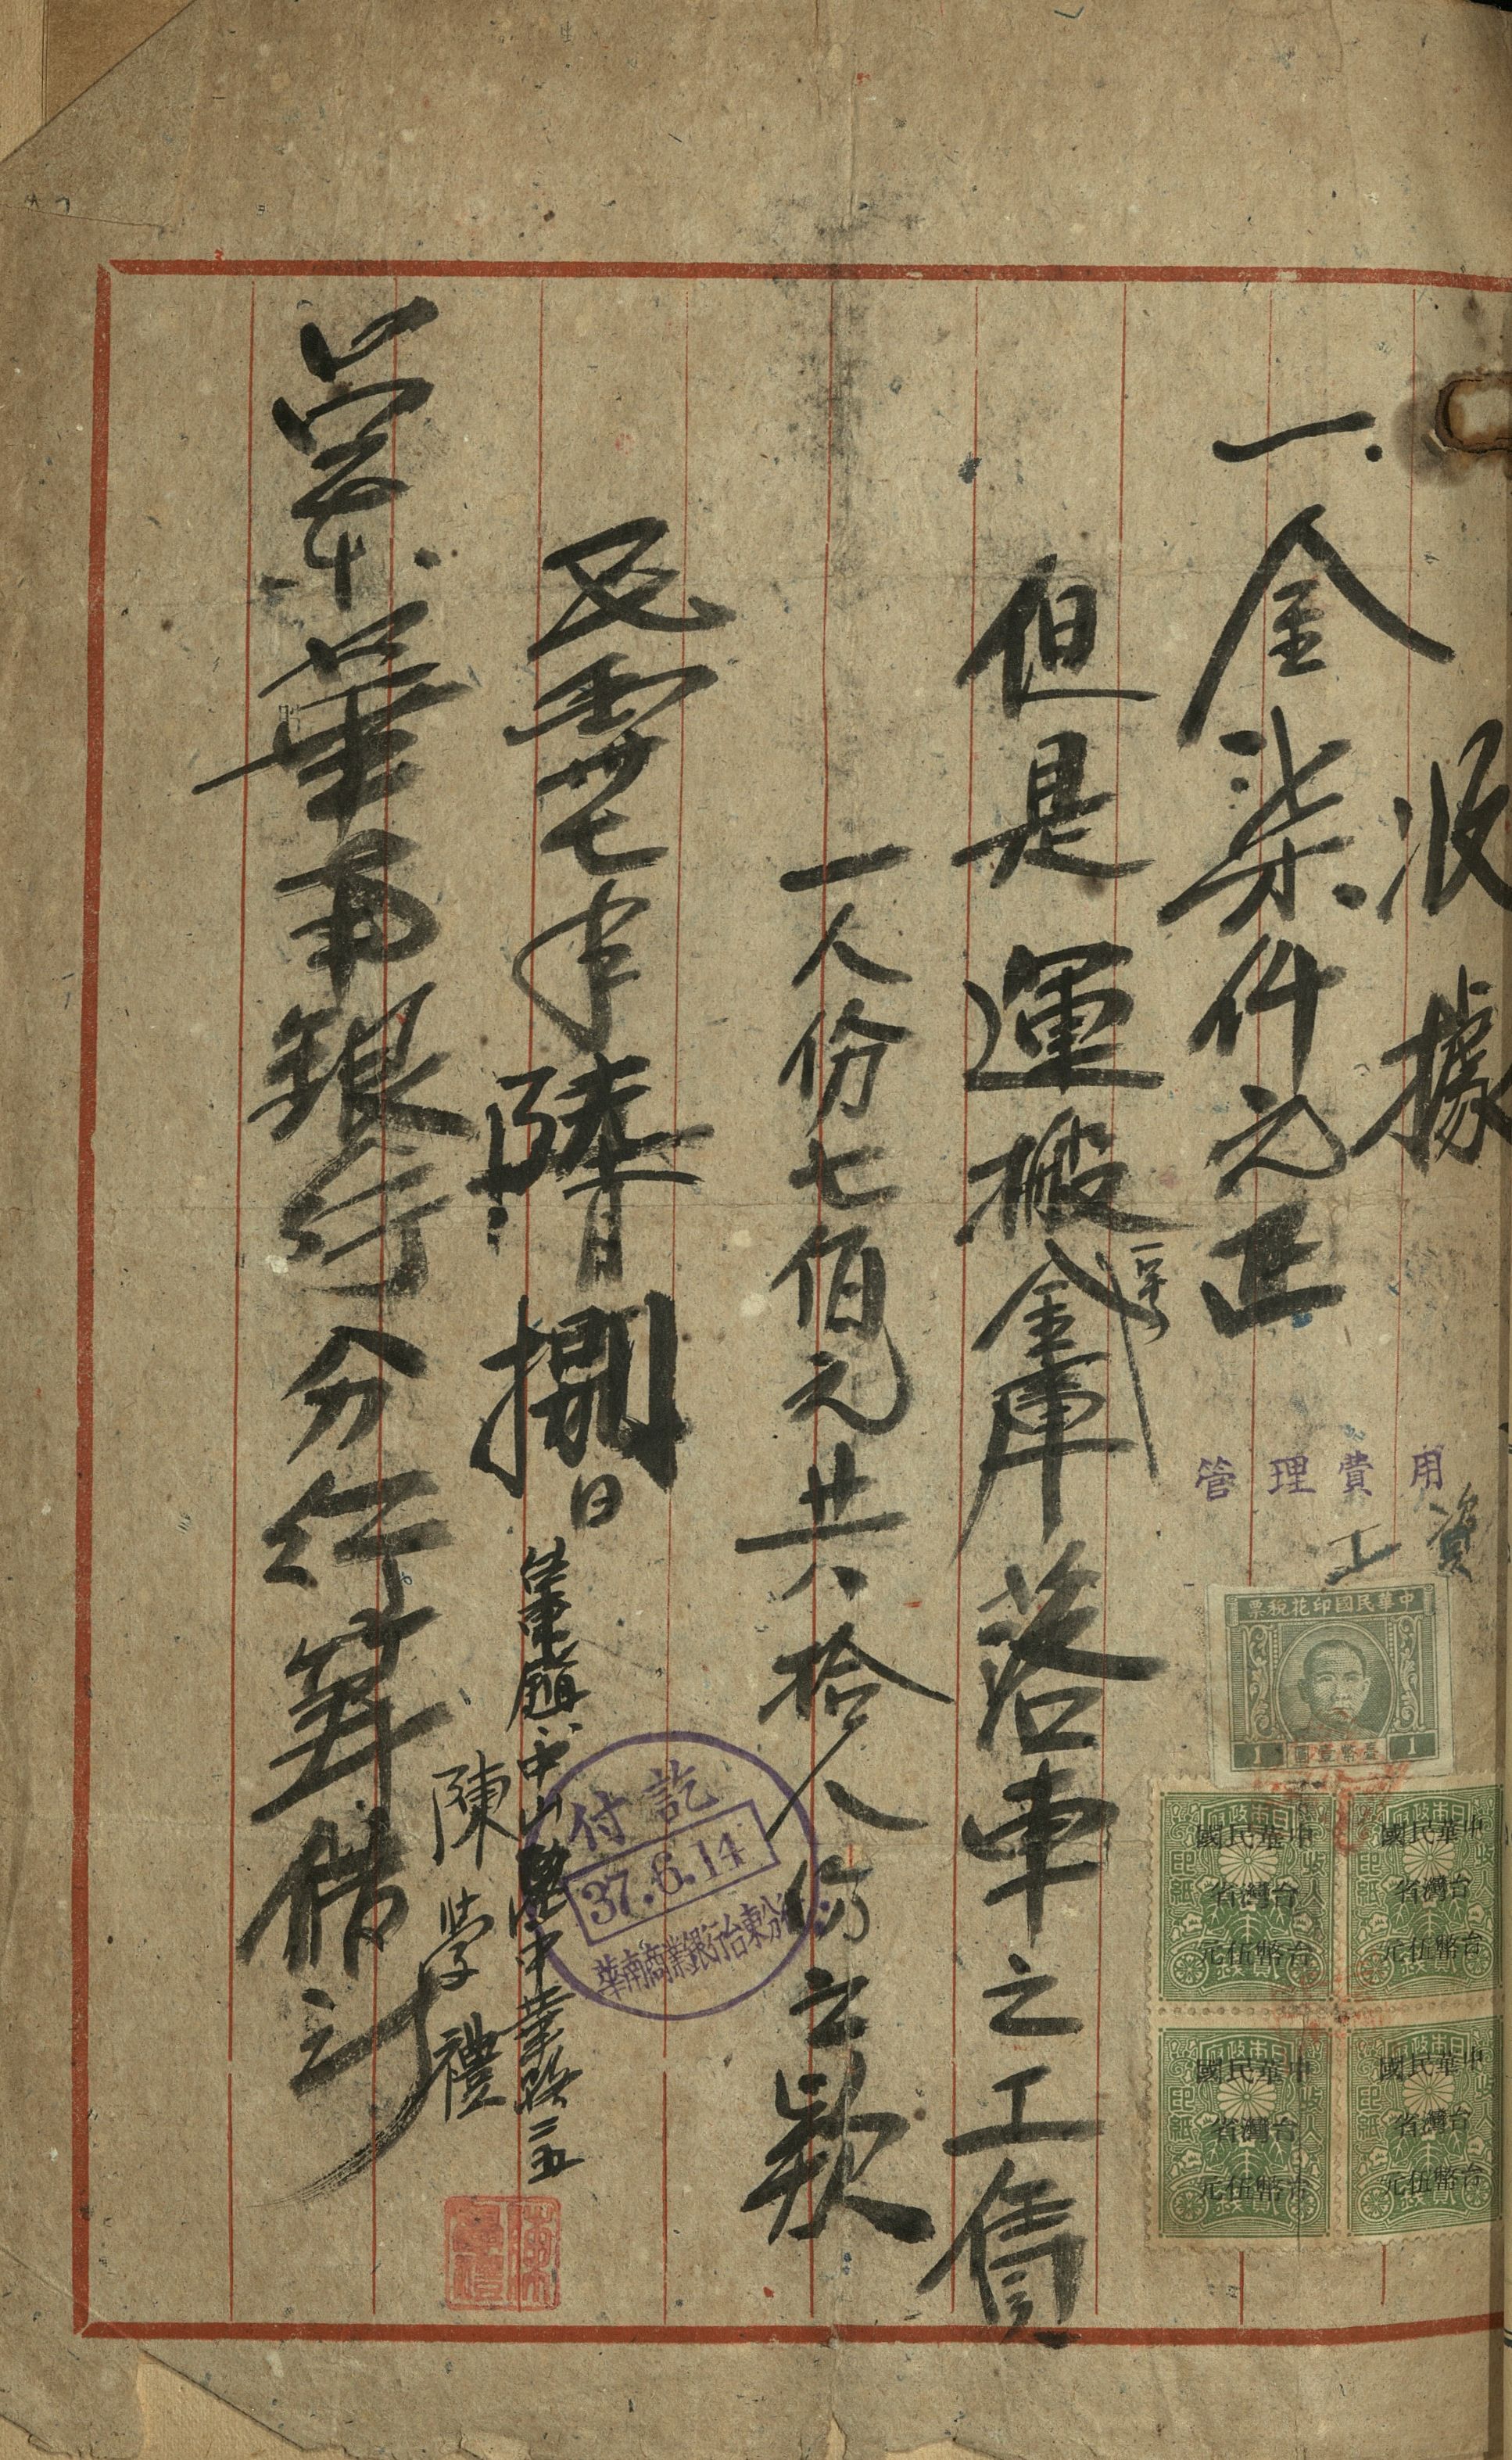 收據
一.金柒仟元正
但是運搬金庫落車之工價
一人份七佰元共拾人份之款
民國卅七年陸月捌日
中山里中華路三五
陳學禮
華南銀行分行
管理費用
工資
中華民國印花稅票
1 臺幣壹圓 1
中華民國
台灣省
台幣伍元
中華民國
台灣省
台幣伍元
中華民國
台灣省
台幣伍元
中華民國
台灣省
台幣伍元
付訖
37.6.14
華南商業銀行台東分行